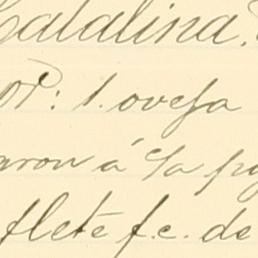 Catalina.
or: 1. oveja
aron á la po
flete f.c. de